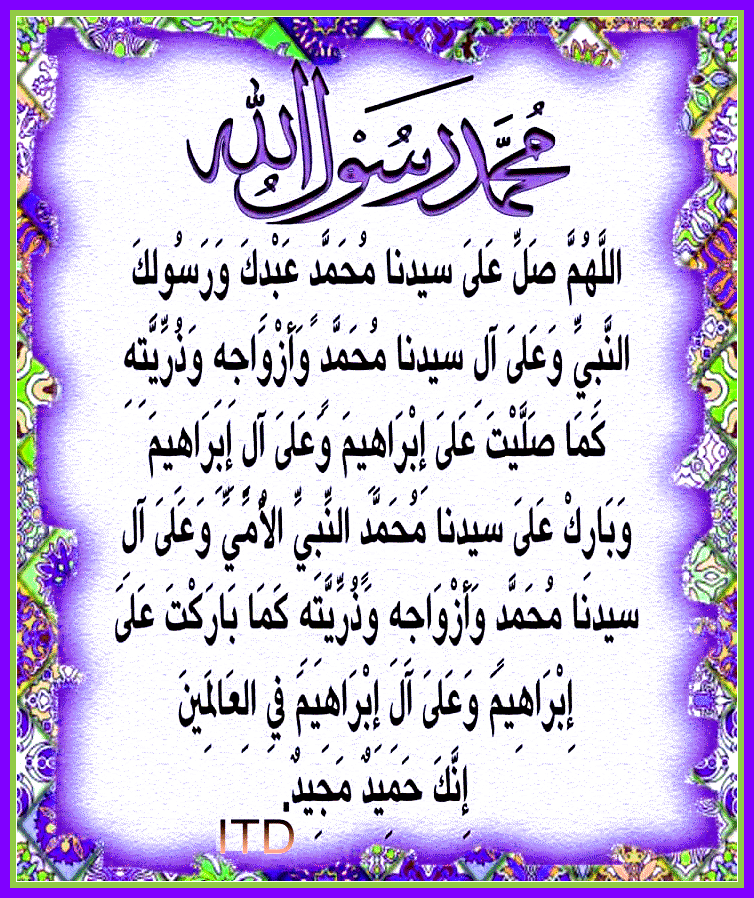 محمد رسول الله
اللَّهُمَّ صَلِّ عَلىَ سيدنا مُحَمَّد عَبْدكَ وَرَسُولكَ
النَّبيِّ وَعَلىَ آلِ سيدنا مُحَمَّد وَأَزْوَاجه وَذُرِّيَّته
كَمَا صَلَّيْتَ عَلىَ إبْرَاهيمَ وَعَلىَ آل إبَرَاهيمَ
وَبَاركْ عَلىَ سيدنا مُحَمَّد النَّبيِّ الأُمِّيِّ وَعَلىَ آل
سيدنَا مُحَمَّد وَأَزْوَاجه وَذُرِّيَّته كَمَا بَارَكْتَ عَلىَ
إِبْرَاهِيمَ وَعَلىَ آلِ إِبْرَاهِيمَ فِي العَالَمِينَ
إِنَّكَ حَمِيدٌ مَجِيدٌ.
ITD